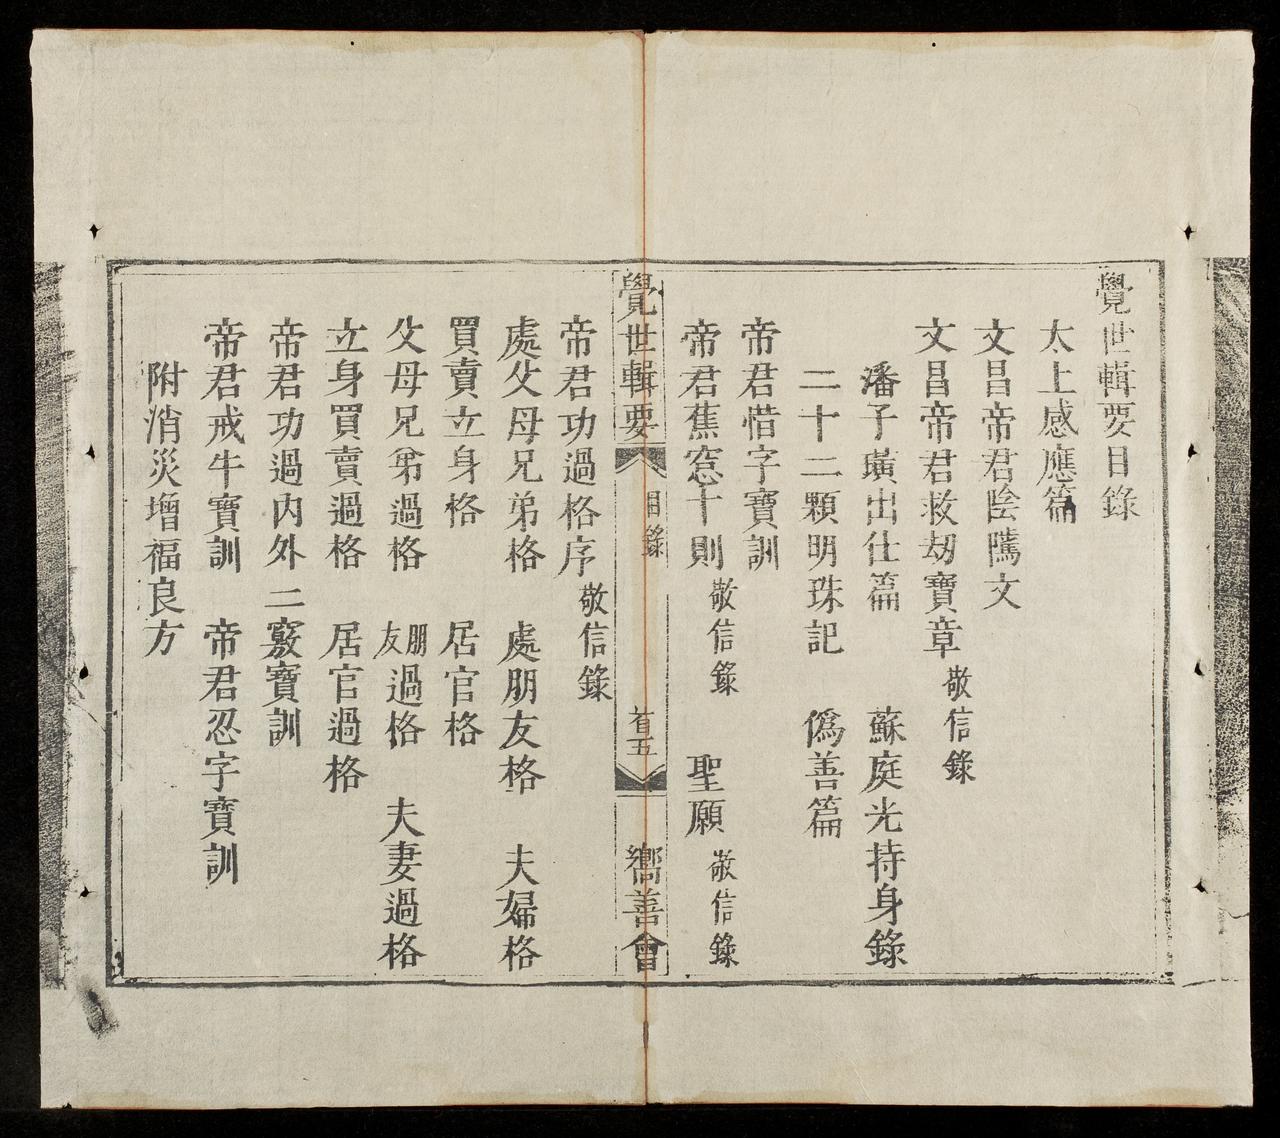 覺世輯要目錄
太上感應篇
文昌帝君陰騭文
文昌帝君救刼寶章 敬信錄
潘子璜出仕篇 蘇庭光持身錄
二十二顆明珠記 僞善篇
帝君惜字寶訓
帝君蕉窓十則 敬信錄 聖願 敬信錄
覺世輯要 目錄 首五 嚮善會
帝君功過格序 敬信錄
處父母兄弟格 處朋友格 夫婦格
買賣立身格 居官格
父母兄弟過格 朋友過格 夫妻過格
立身買賣過格 居官過格
帝君功過内外二竅寶訓
帝君戒牛寶訓 帝君忍字寶訓
附消災增福良方